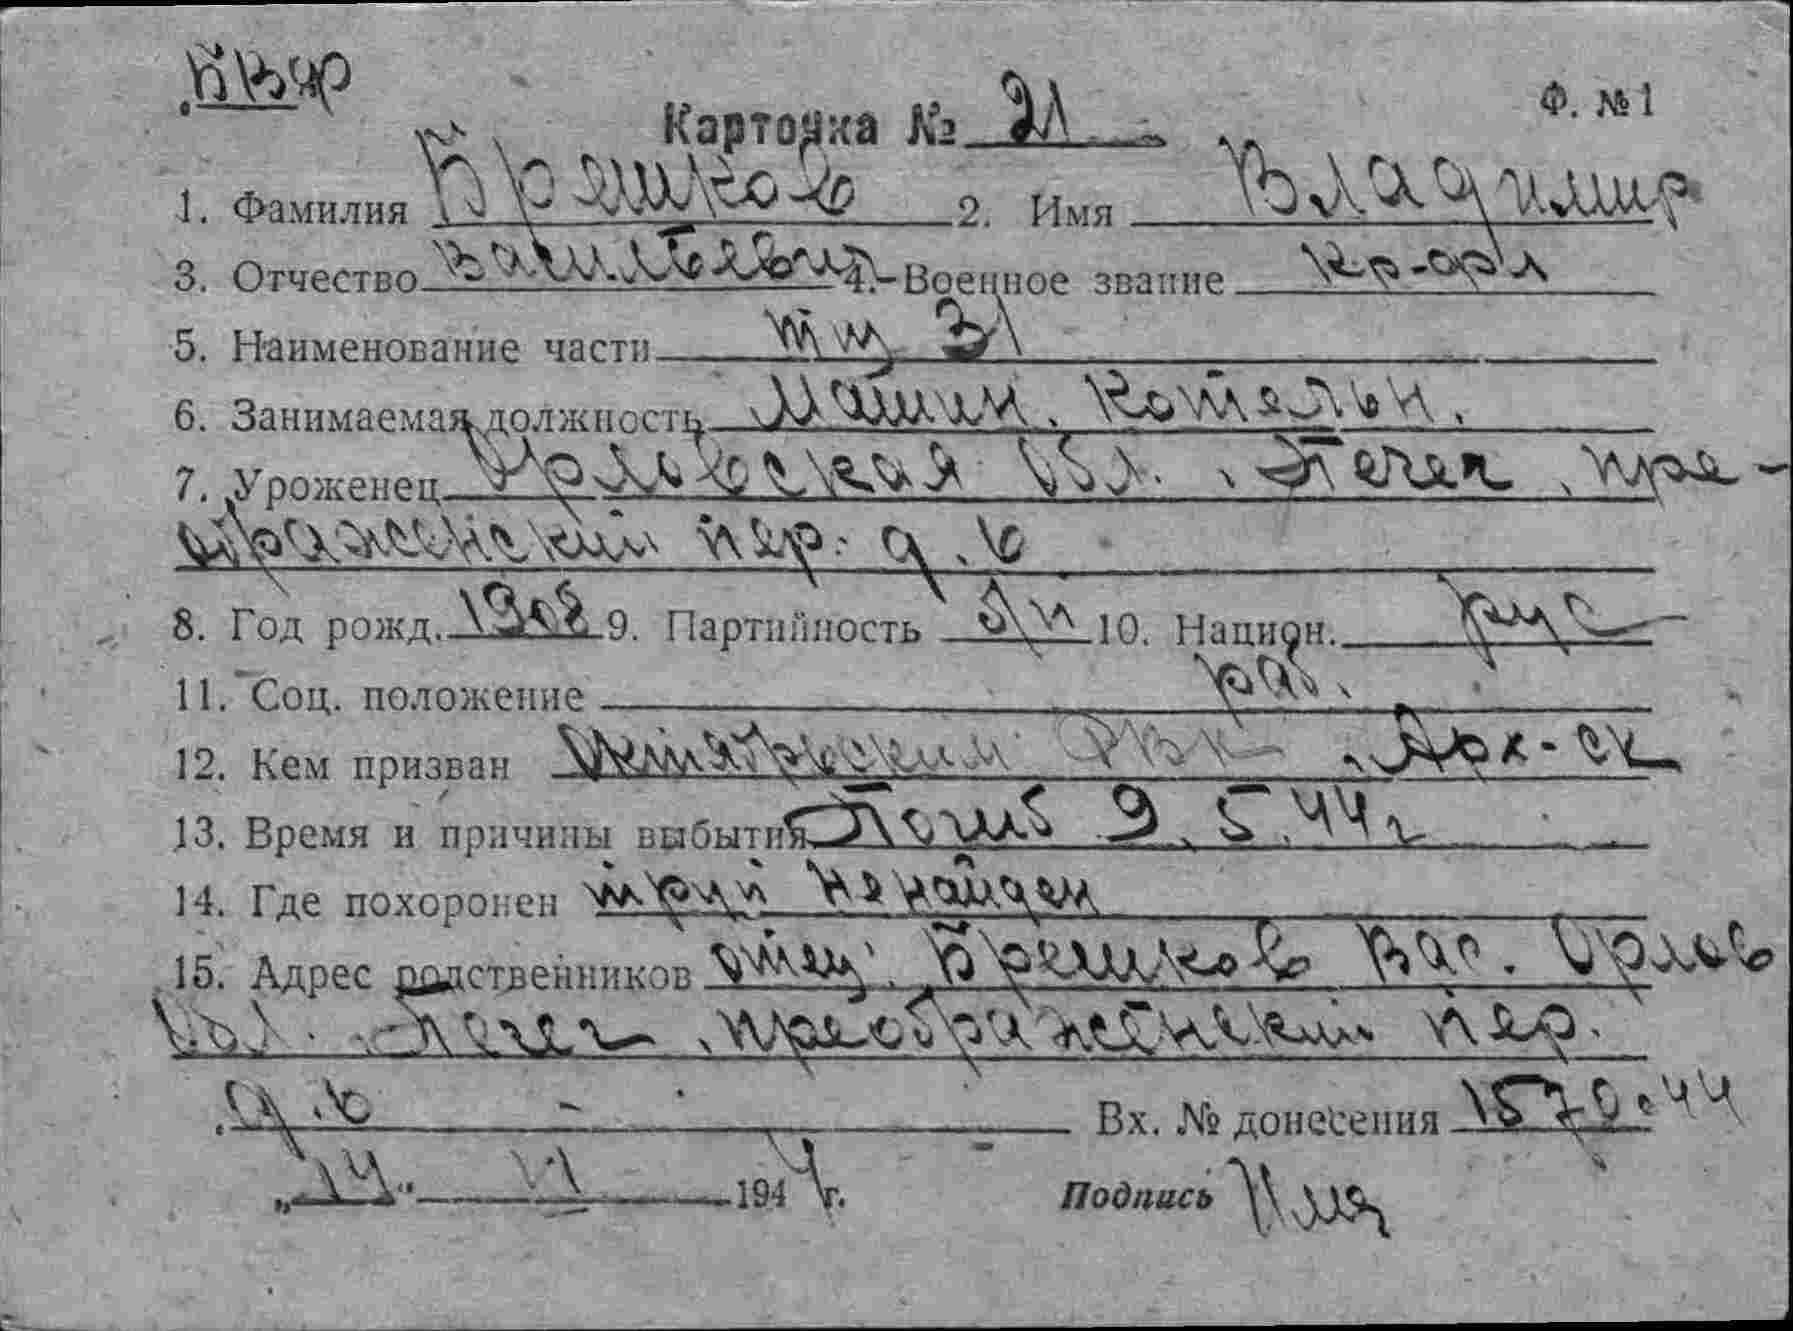 Ф. №1
Карточка № 21
1. Фамилия Брешков 2. Имя Владимир
3. Отчество Васильевич 4. Военное звание кр-фл
5. Наименование части тщ 31
6. Занимаемая должность Машин. котельн.
7. Уроженец Орловская обл., пре-
ображенский пер. д. 6
8. Год рожд. 1908 9. Партийность б/п 10. Национ. рус
11. Соц. положение раб.
12. Кем призван Октябрьским РВК, Арх-ск
13. Время и причины выбытия Погиб 9.5.44г
14. Где похоронен труп не найден
15. Адрес родственников отец: Брешков Вас. Орлов
обл., преображенский пер.
д. 6 Вх. № донесения 1570с44
„14“ VI 1944г. Подпись